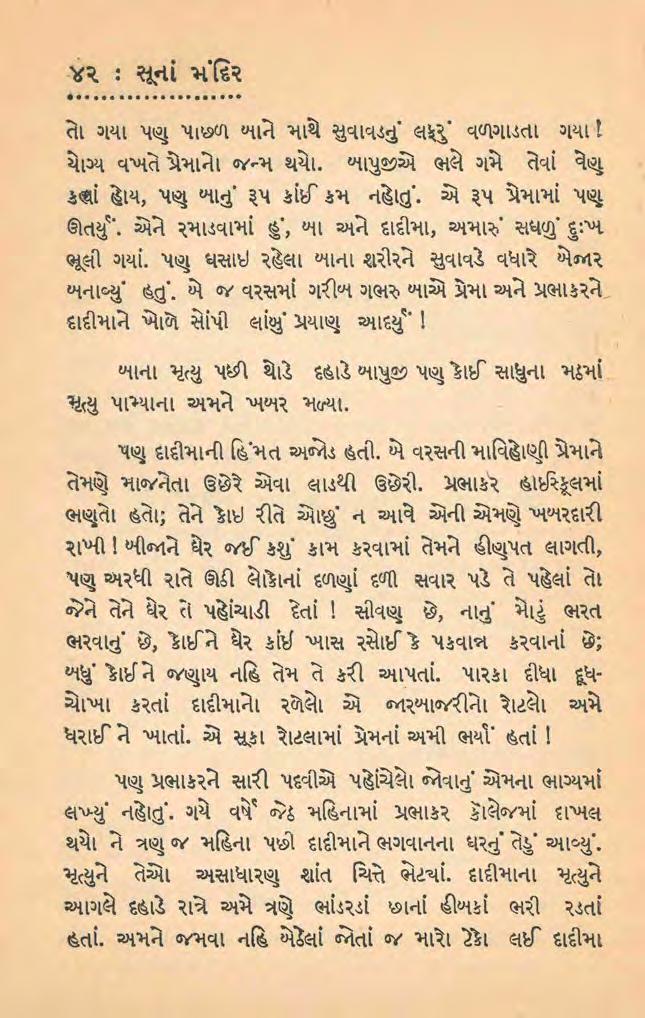 ૪૨ : સૂનાં મંદિર
તો ગયા પણ પાછળ બાને માથે સુવાવડનું લફરું વળગાડતા ગયા !
યોગ્ય વખતે પ્રેમાનો જન્મ થયો. બાપુજીએ ભલે ગમે તેવાં વેણ
કહ્યાં હોય, પણ બાનું રૂપ કાંઈ કમ નહોતું. એ રૂપ પ્રેમામાં પણ
ઊતર્યું. એને રમાડવામાં હું, બા અને દાદીમા, અમારું સઘળું દુઃખ
ભૂલી ગયાં. પણ ઘસાઇ રહેલા બાના શરીરને સુવાવડે વધારે બેજાર
બનાવ્યું હતું. બે જ વરસમાં ગરીબ ગભરુ બાએ પ્રેમા અને પ્રભાકરને
દાદીમાને ખોળે સોંપી લાંબું પ્રયાણ આદર્યું !
બાના મૃત્યુ પછી થોડે દહાડે બાપુજી પણ કોઈ સાધુના મઠમાં
મૃત્યુ પામ્યાના અમને ખબર મળ્યા.
પણ દાદીમાની હિંમત અજોડ હતી. બે વરસની માવિહોણી પ્રેમાને
તેમણે માજનેતા ઉછેરે એવા લાડથી ઉછેરી. પ્રભાકર હાઇસ્કૂલમાં
ભણતો હતો; તેને કોઇ રીતે ઓછું ન આવે એની એમણે ખબરદારી
રાખી ! બીજાને ઘેર જઈ કશું કામ કરવામાં તેમને હીણપત લાગતી,
પણ અરધી રાતે ઊઠી લોકોનાં દળણાં દળી સવાર પડે તે પહેલાં તો
જેને તેને ઘેર તે પહોંચાડી દેતાં ! સીવણ છે, નાનું મોટું ભરત
ભરવાનું છે, કોઈને ઘેર કાંઈ ખાસ રસોઈ કે પકવાન્ન કરવાનાં છે;
બધું કોઈને જણાય નહિ તેમ તે કરી આપતાં. પારકા દીધા દૂધ-
ચોખા કરતાં દાદીમાનો રળેલો એ જારબાજરીનો રોટલો અમે
ધરાઈ ને ખાતાં. એ સૂકા રોટલામાં પ્રેમનાં અમી ભર્યાં હતાં !
પણ પ્રભાકરને સારી પદવીએ પહોંચેલો જોવાનું એમના ભાગ્યમાં
લખ્યું નહોતું. ગયે વર્ષે જેઠ મહિનામાં પ્રભાકર કૉલેજમાં દાખલ
થયો ને ત્રણ જ મહિના પછી દાદીમાને ભગવાનના ઘરનું તેડું આવ્યું.
મૃત્યુને તેઓ અસાધારણ શાંત ચિત્તે ભેટ્યાં. દાદીમાના મૃત્યુને
આગલે દહાડે રાત્રે અમે ત્રણે ભાંડરડાં છાનાં હીબકાં ભરી રડતાં
હતાં. અમને જમવા નહિ બેઠેલાં જોતાં જ મારો ટેકો લઈ દાદીમા